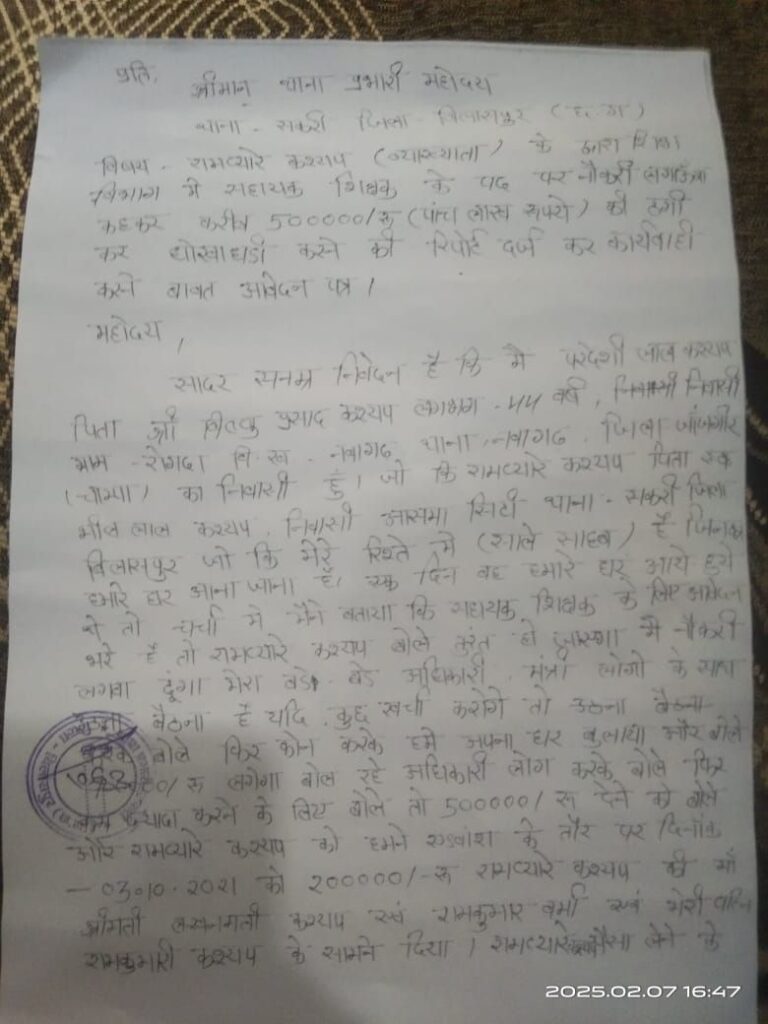 प्रति,
श्रीमान् थाना प्रभारी महोदय
थाना - सकरी जिला - बिलासपुर (छ.ग)
विषय - रामप्यारे कश्यप (व्याख्याता) के द्वारा शिक्षा
विभाग में सहायक शिक्षक के पद पर नौकरी लगाऊंगा
कहकर करीब 500000/रू (पांच लाख रूपये) की ठगी
कर धोखाधडी करने की रिपोर्ट दर्ज कर कार्यवाही
करने बाबत आवेदन पत्र।
महोदय,
सादर सनम्र निवेदन है कि मै परदेशी लाल कश्यप
पिता श्री प्रसाद कश्यप लगभग - 44 वर्ष, निवासी
ग्राम - रोगदा वि.ख. नवागढ थाना, नवागढ, जिला जांजगीर
(चाम्पा) का निवासी हुँ। जो कि रामप्यारे कश्यप पिता स्व
लाल कश्यप, निवासी आसमा सिटी थाना - सकरी जिला
बिलासपुर जो कि मेरे रिश्ते में (साले साहब) है जिनका
हमारे घर आना जाना है। एक दिन वह हमारे घर आये हुये
थे तो चर्चा मे मैने बताया कि सहायक शिक्षक के लिए आवेदन
भरे है तो रामप्यारे कश्यप बोले तुरंत हो जाएगा मै नौकरी
लगवा दूंगा मेरा बडे बडे अधिकारी, मंत्री लोगो के साथ
उठना बैठना है यदि कुछ खर्चा करोगे तो उठना बैठना
करके बोले फिर फोन करके हमे अपना घर बुलाया और बोले
/रू लगेगा बोल रहे अधिकारी लोग करके बोले फिर
ज्यादा करने के लिए बोले तो 500000/रू देने को बोले
और रामप्यारे कश्यप को हमने एडवांस के तौर पर दिनांक
- 03.10.2021 को 200000/-रू रामप्यारे कश्यप की माँ
श्रीमती लखनमती कश्यप एवं रामकुमार वर्मा एवं मेरी पत्नि
रामकुमारी कश्यप के सामने दिया। रामप्यारे पैसा लेने के
2025.02.07 16:47